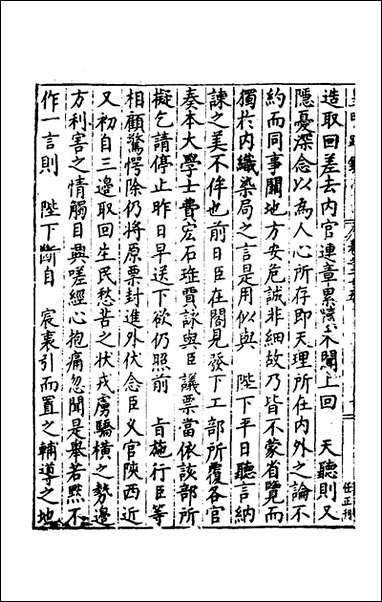 造取回差去内官連章累牘不聞上回　天聽則又
隱憂深念以為人心所存即天理所在内外之論不
約而同事關地方安危誠非細故乃皆不蒙省覽而
獨於内織染局之言是用似與　陛下平日聽言納
諫之美不侔也前日臣在閣見發下工部所覆各官
奏本大學士費宏石珤賈詠與臣議票當依該部所
擬乞請停止昨日早送下欲仍照前　旨施行臣等
相顧驚愕除仍將原票封進外伏念臣又官陝西近
又初自三邊取回生民愁苦之状戎虜驕横之勢邊
方利害之情觸目興嗟經心抱痛忽聞是舉若黙不
作一言則　陛下斷自　宸衷引而置之輔導之地